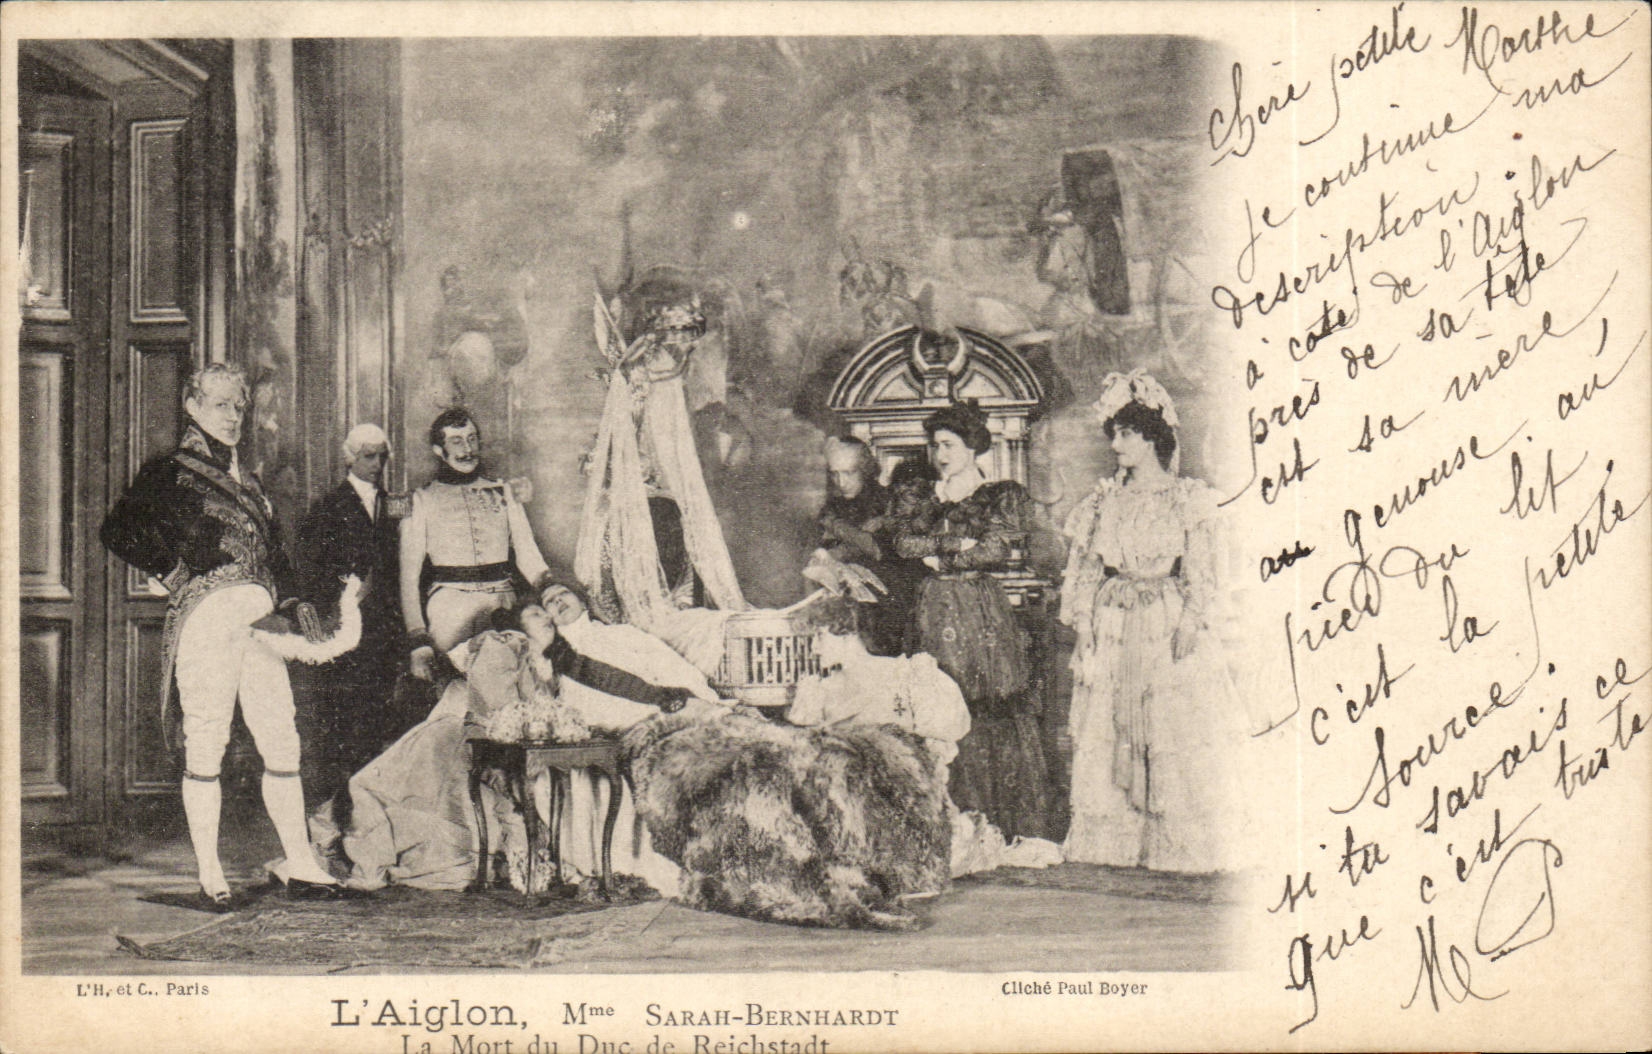 Chère petite Marthe
Je continue ma
description.
à coté de l'Aiglon
près de sa tête
est sa mère,
au genouse au
pied du lit
c'est la petite
Source.
si tu savais ce
que c'est triste
L'H. et C., Paris
Cliché Paul Boyer
L'Aiglon, Mme SARAH-BERNHARDT
La Mort du Duc de Reichstadt